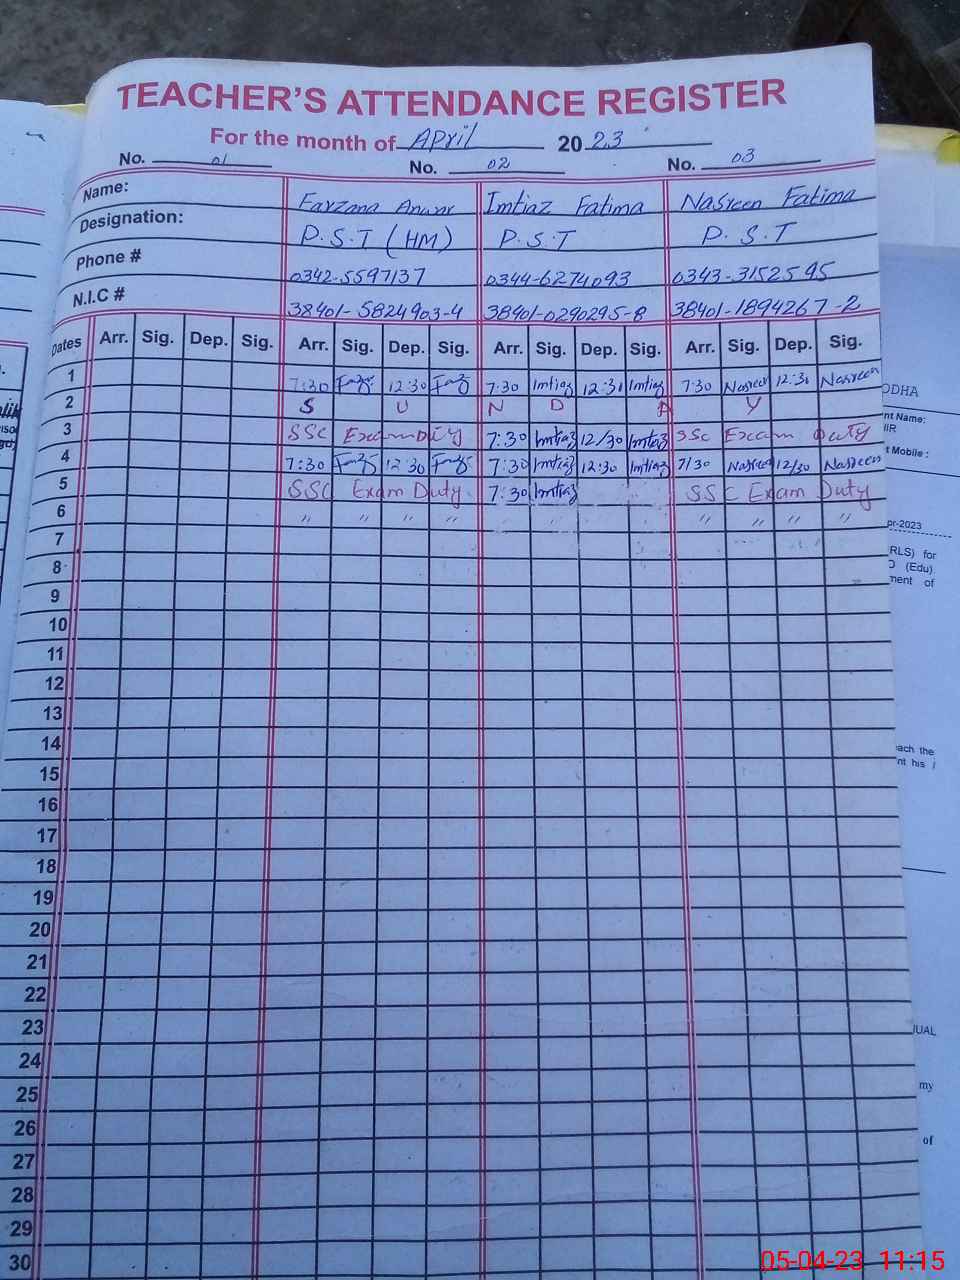 TEACHER'S ATTENDANCE REGISTER
For the month of April 2023
No. 01 No. 02 No. 03
Name: Farzana Anwar Imtiaz Fatima Nasreen Fatima
Designation: P.S.T (HM) P.S.T P.S.T
Phone # 0342-5597137 0344-6274093 0343-3152595
N.I.C # 38401-5824903-4 38401-0290295-8 38401-1894267-2
Dates Arr. Sig. Dep. Sig. Arr. Sig. Dep. Sig. Arr. Sig. Dep. Sig. Arr. Sig. Dep. Sig.
1 7:30 12:30 7:30 Imtiaz 12:30 Imtiaz 7:30 Nasreen 12:30 Nasreen
2 S U N D A Y
3 SSC Exam Duty 7:30 Imtiaz 12/30 Imtiaz SSc Exam Duty
4 7:30 12:30 7:30 Imtiaz 12:30 Imtiaz 7/30 Nasreen 12/30 Nasreen
5 SSC Exam Duty 7:30 Imtiaz SSC Exam Duty
6 " " " " " " " "
7
8
9
10
11
12
13
14
15
16
17
18
19
20
21
22
23
24
25
26
27
28
29
30
ODHA
nt Name:
IIR
t Mobile :
pr-2023
RLS) for
O (Edu)
ment of
ach the
nt his /
UAL
my
of
05-04-23 11:15